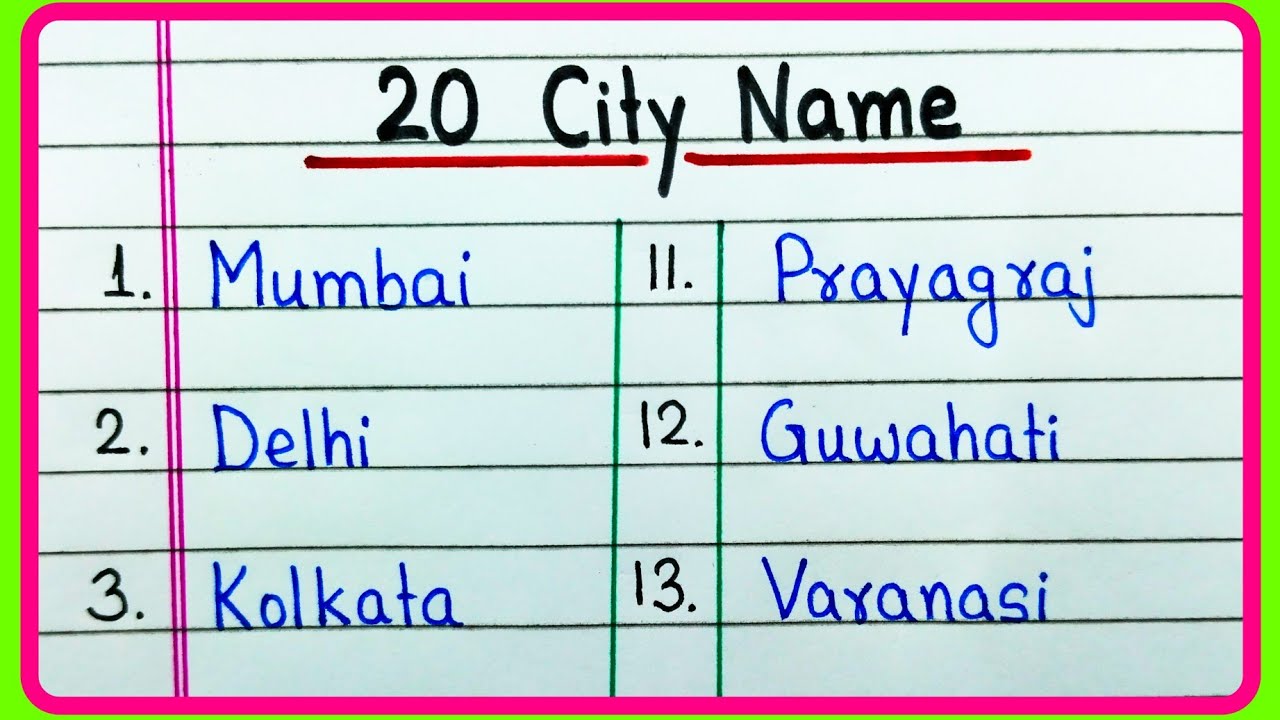 20 City Name
1. Mumbai 11. Prayagraj
2. Delhi 12. Guwahati
3. Kolkata 13. Varanasi